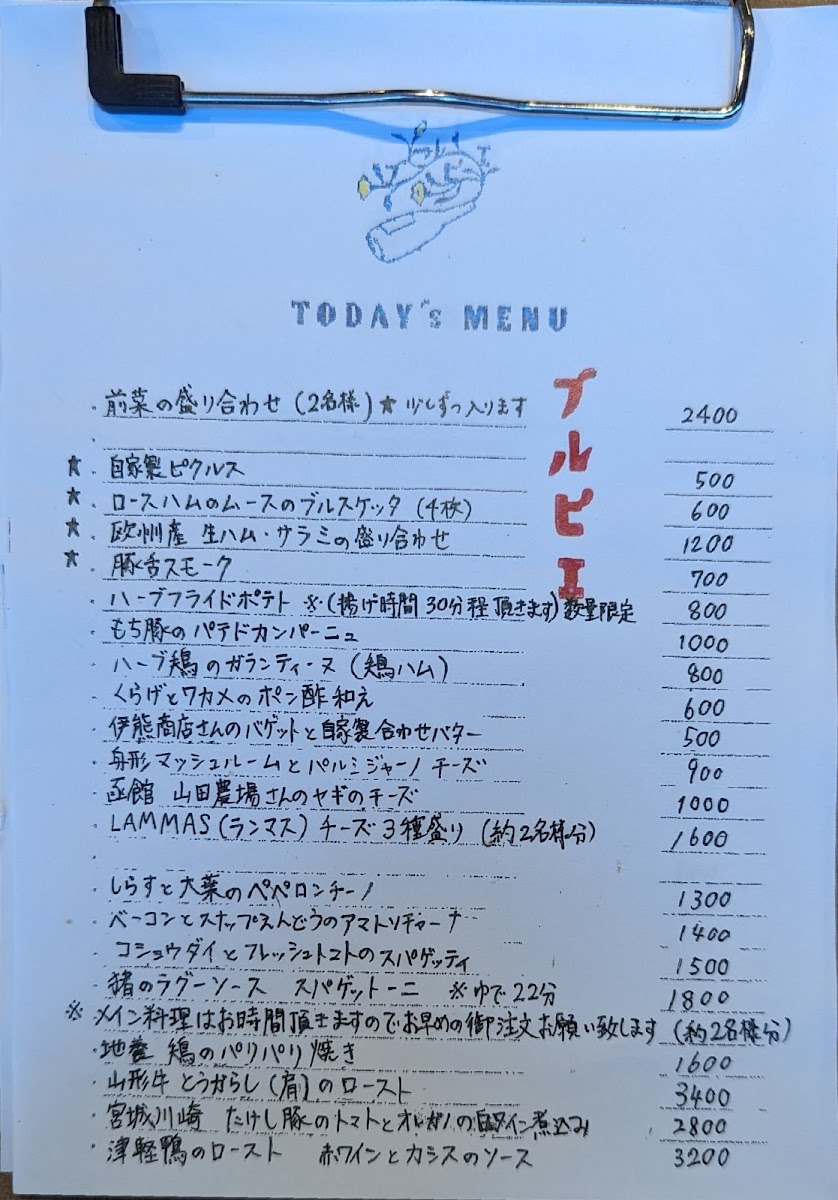 TODAY's MENU
プルピエ
・前菜の盛り合わせ (2名様) ★ 少しずつ入ります 2400
★ ・自家製ピクルス 500
★ ・ロースハムのムースのブルスケッタ (4枚) 600
★ ・欧州産 生ハム・サラミの盛り合わせ 1200
★ ・豚舌スモーク 700
・ハーブフライドポテト ※(揚げ時間30分程頂きます)数量限定 800
・もち豚のパテドカンパーニュ 1000
・ハーブ鶏のガランティーヌ (鶏ハム) 800
・くらげとワカメのポン酢和え 600
・伊能商店さんのバゲットと自家製合わせバター 500
・舟形マッシュルームとパルミジャーノチーズ 900
・函館 山田農場さんのヤギのチーズ 1000
・LAMMAS(ランマス)チーズ3種盛り (約2名様分) 1600
・しらすと大葉のペペロンチーノ 1300
・ベーコンとスナップえんどうのアマトリチャーナ 1400
・コショウダイとフレッシュトマトのスパゲッティ 1500
・猪のラグーソース スパゲットーニ ※ゆで22分 1800
※メイン料理はお時間頂きますのでお早めの御注文お願い致します (約2名様分)
・地養鶏のパリパリ焼き 1600
・山形牛とうがらし(肩)のロースト 3400
・宮城川崎 たけし豚のトマトとオレガノの白ワイン煮込み 2800
・津軽鴨のロースト 赤ワインとカシスのソース 3200